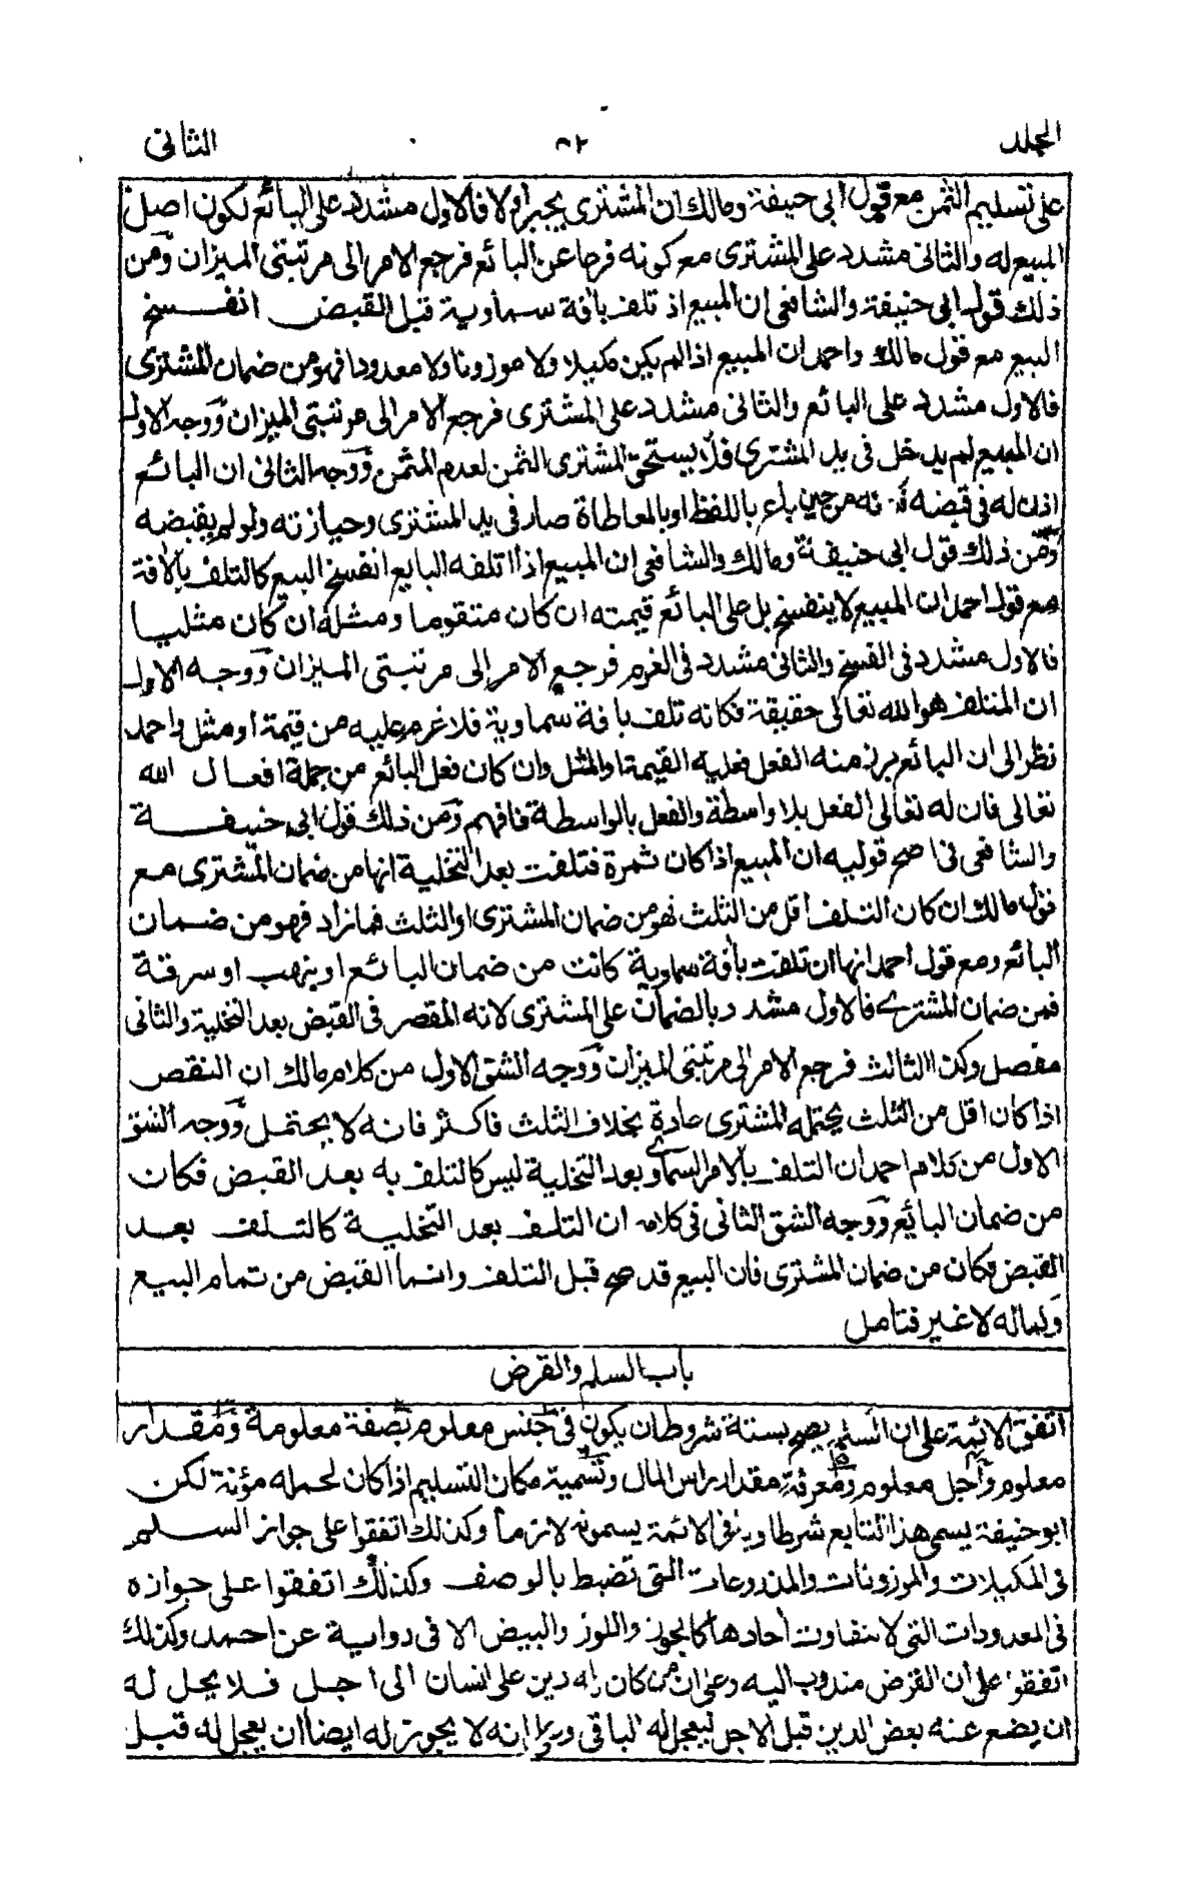 المجلد ٦٢ الثانى
على تسليم الثمن مع قول ابى حنيفة ومالك ان المشترى يجبر اولا فالاول مشدد على البائع لكون اصل
المبيع له والثانى مشدد على المشترى مع كونه فرعا عن البائع فرجع الامر الى مرتبتى الميزان ومن
ذلك قول ابى حنيفة والشافعى ان المبيع اذ تلف بافة سماوية قبل القبض انفسخ
البيع مع قول مالك واحمد ان المبيع اذا لم يكن مكيلا ولا موزونا ولا معدودا فهو من ضمان المشترى
فالاول مشدد على البائع والثانى مشدد على المشترى فرجع الامر الى مرتبتى الميزان ووجه الاول
ان المبيع لم يدخل فى يد المشترى فلا يستحق المشترى الثمن لعدم المثمن ووجه الثانى ان البائع
اذن له فى قبضه فانه من حين باع باللفظ او بالمعاطاة صار فى يد المشترى وحيازته ولو لم يقبضه
ومن ذلك قول ابى حنيفة ومالك والشافعى ان المبيع اذا اتلفه البايع انفسخ البيع كالتلف بالافة
مع قول احمد ان المبيع لا ينفسخ بل على البائع قيمته ان كان متقوما ومثله ان كان مثليا
فالاول مشدد فى الفسخ والثانى مشدد فى الغرم فرجع الامر الى مرتبتى الميزان ووجه الاول
ان المتلف هو الله تعالى حقيقة فكانه تلف بافة سماوية فلا غرم عليه من قيمة او مثل واحمد
نظر الى ان البائع برز منه الفعل فعليه القيمة او المثل وان كان فعل البائع من جملة افعال الله
تعالى فان له تعالى الفعل بلا واسطة والفعل بالواسطة فافهم ومن ذلك قول ابى حنيفة
والشافعى فى اصح قوليه ان المبيع اذا كان ثمرة فتلفت بعد التخلية انها من ضمان المشترى مع
قول مالك ان كان التلف اقل من الثلث فهو من ضمان المشترى او الثلث فما زاد فهو من ضمان
البائع ومع قول احمد انها ان تلفت بافة سماوية كانت من ضمان البائع او بنهب او سرقة
فمن ضمان المشترے فالاول مشدد بالضمان على المشترى لانه المقصر فى القبض بعد التخلية والثانى
مفصل وكذا الثالث فرجع الامر الى مرتبتى الميزان ووجه الشق الاول من كلام مالك ان النقص
اذا كان اقل من الثلث يحتمله المشترى عادة بخلاف الثلث فاكثر فانه لا يحتمل ووجه الشق
الاول من كلام احمد ان التلف بالامر السماوى بعد التخلية ليس كالتلف به بعد القبض فكان
من ضمان البائع ووجه الشق الثانى فى كلامه ان التلف بعد التخلية كالتلف بعد
القبض فكان من ضمان المشترى فان البيع قد صح قبل التلف وانما القبض من تمام البيع
وكماله لا غير فتامل
باب السلم والقرض
اتفق الائمة على ان السلم يصح بستة شروط ان يكون فى جنس معلوم بصفة معلومة ومقدار
معلوم واجل معلوم ومعرفة مقدار راس المال وتسمية مكان التسليم اذا كان لحمله مؤنة لكن
ابو حنيفة يسمى هذا التابع شرطا وباقى الائمة يسمونه لازما وكذلك اتفقوا على جواز السلم
فى المكيلات والموزونات والمذروعات التى تضبط بالوصف وكذلك اتفقوا على جوازه
فى المعدودات التى لا تتفاوت احادها كالجوز واللوز والبيض الا فى رواية عن احمد وكذلك
اتفقوا على ان القرض مندوب اليه وعلى ان من كان له دين على انسان الى اجل فلا يحل له
ان يضع عنه بعض الدين قبل الاجل ليعجل له الباقى وعلى انه لا يجوز له ايضا ان يعجل له قبل